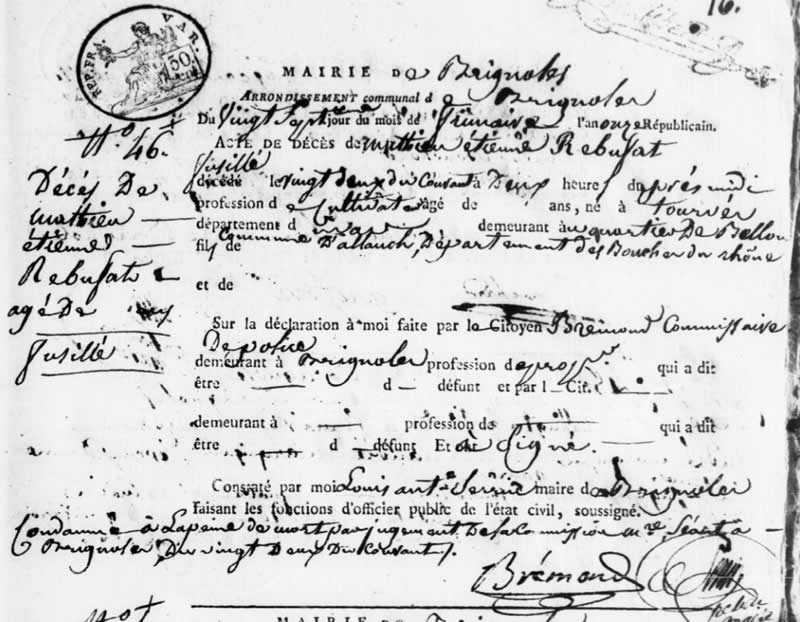 16.
REP. FRA. VAR.
50
MAIRIE De Brignoles
ARRONDISSEMENT communal d e Brignoles
Du Vingt Sept jour du mois de frimaire l'an onze Républicain.
N.o 46.
ACTE DE DÉCÈS de mathieu étienne Rebufat
fusillé
décédé le vingt deux du Courant à Deux heures du après midi
profession de Cultivateur âgé de ans, né à tourvés
département d var demeurant à u quartier De Bellon
fils de Commune D'allauch, Département des Bouches du rhône
et de
Décés De
mathieu
étienne
Rebufat
agé De
fusillé
Sur la déclaration à moi faite par le Citoyen Brémond Commissaire
De police
demeurant à Brignoles profession de prop.re qui a dit
être d défunt et par l Cit.
demeurant à profession de qui a dit
être d défunt Et ont Signé.
Constaté par moi Louis ant.e maire de Brignoles
faisant les fonctions d'officier public de l'état civil, soussigné.
Condamné à La peine de mort par jugement De la Commission m.re Séant a
Brignoles, Du vingt Deux Du Courant.
Brémond
MAIRIE DE